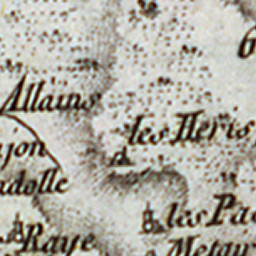 6
Allains
les Heris
jon
adolle
les Pa
Raye
Metau